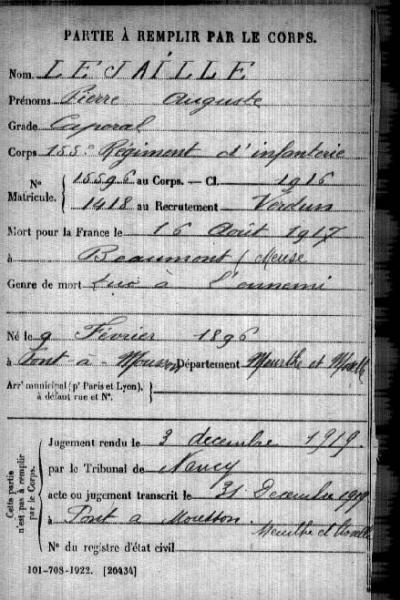 PARTIE À REMPLIR PAR LE CORPS.
Nom LEJAILLE
Prénoms Pierre Auguste
Grade Caporal
Corps 155e Régiment d'infanterie
No Matricule. { 15596 au Corps. — Cl. 1916
1418 au Recrutement Verdun
Mort pour la France le 16 Août 1917
à Beaumont (Meuse
Genre de mort Tué à l'ennemi
Né le 9 Février 1896
à Pont-à-Mousson Département Meurthe et Moselle
Arr' municipal (p' Paris et Lyon),
à défaut rue et N°.
Cette partie n'est pas à remplir par le Corps.
Jugement rendu le 3 decembre 1919.
par le Tribunal de Nancy
acte ou jugement transcrit le 31 Decembre 1919
à Pont à Mousson.
Meurthe et Moselle
N° du registre d'état civil
101-708-1922. [26434]